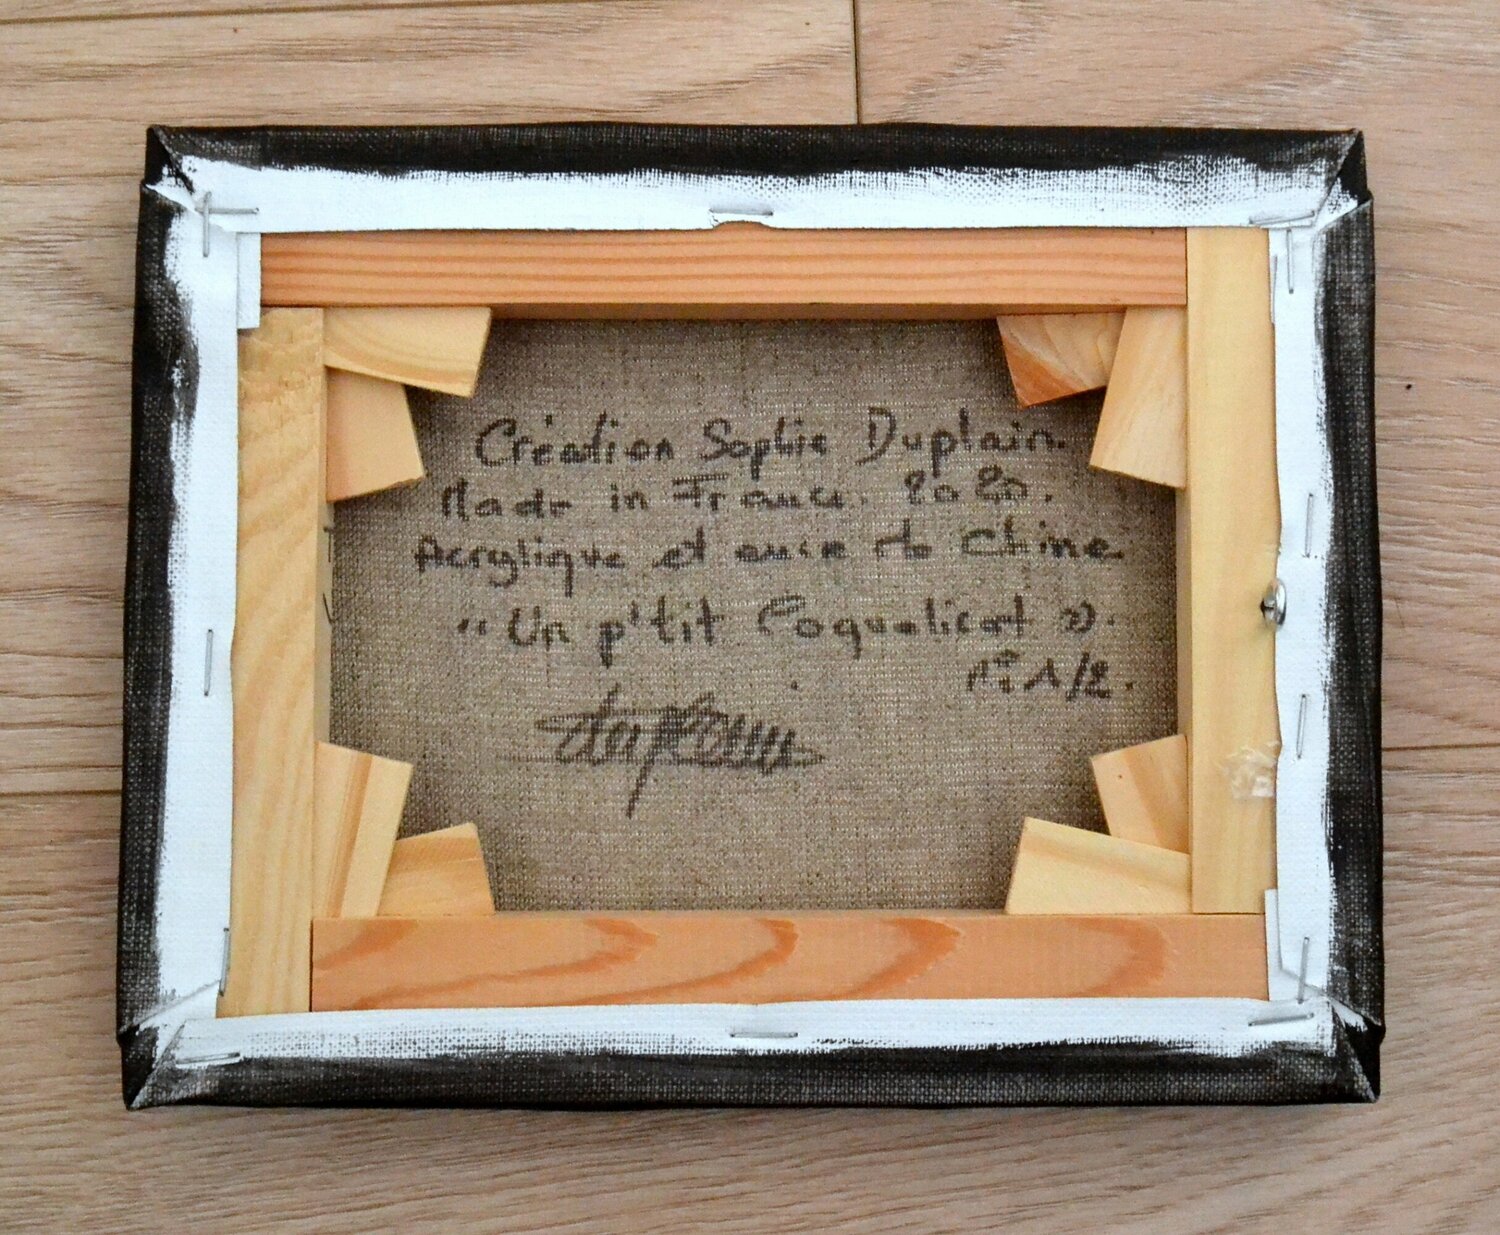 Création Sophie Duplain.
Made in France. 2020.
Acrylique et encre de Chine
" Un p'tit Coquelicot ".
n° 1/2.